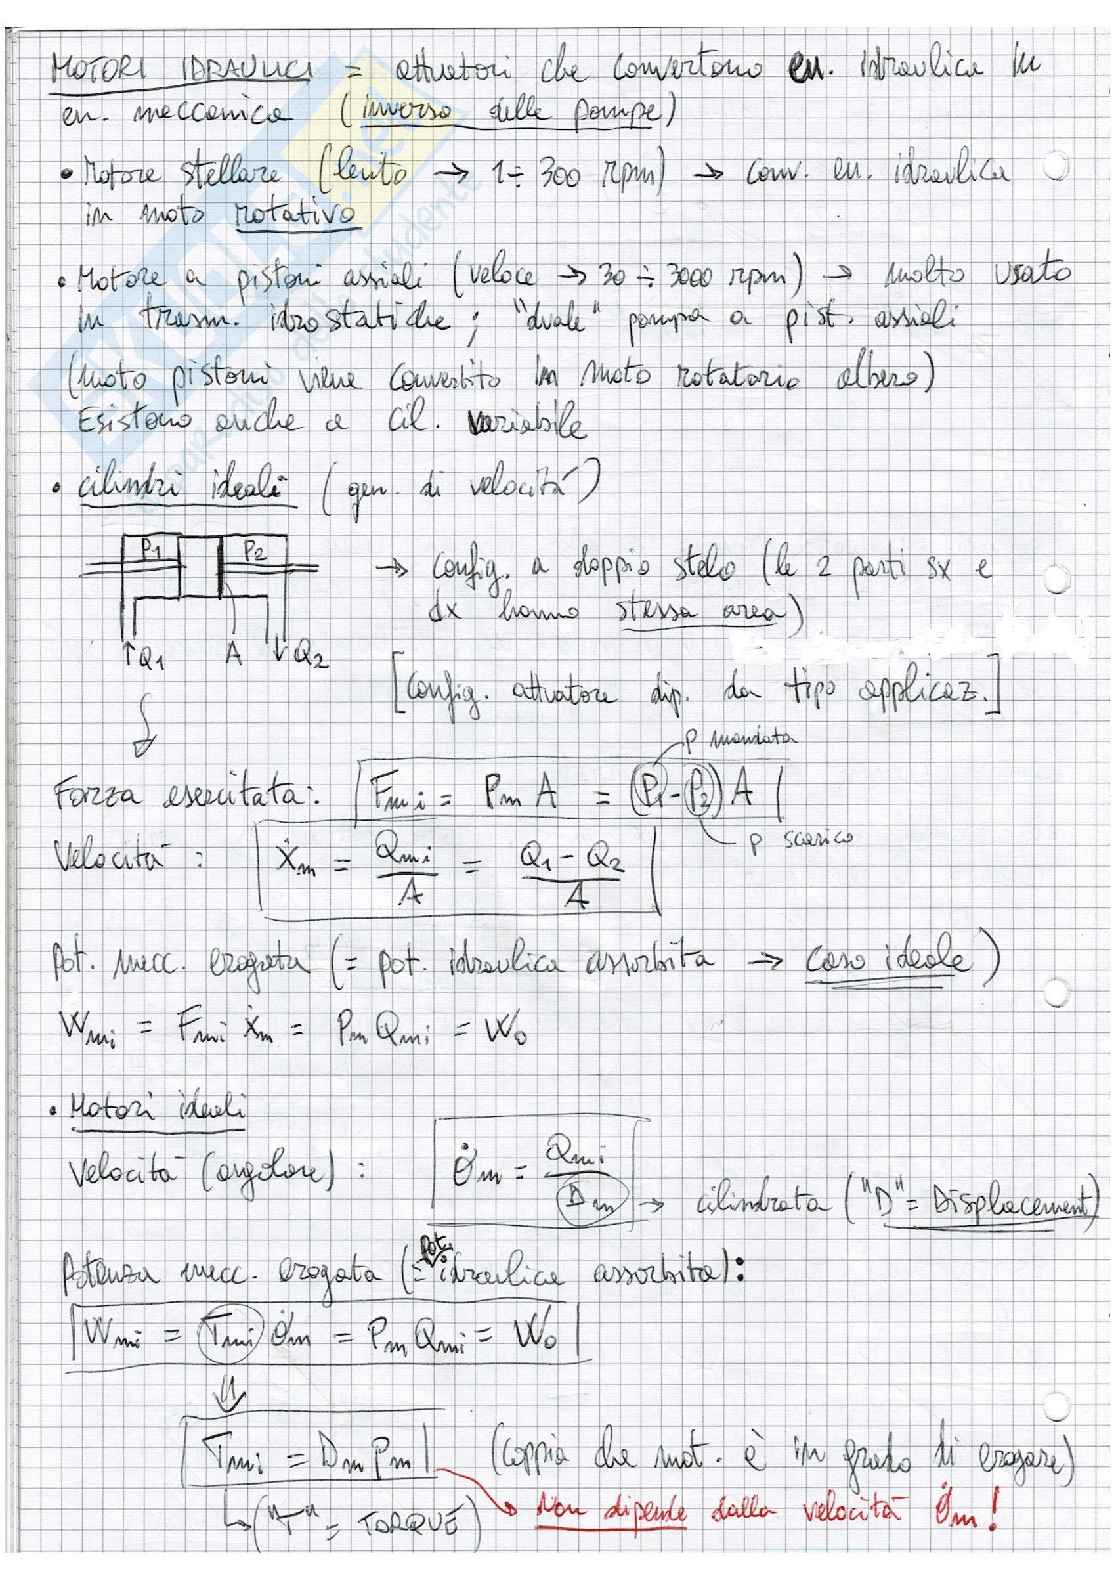 MOTORI IDRAULICI = attuatori che convertono en. idraulica in
en. meccanica (inverso delle pompe)
• Motore stellare (lento → 1÷300 rpm) → conv. en. idraulica
in moto rotativo
• Motore a pistoni assiali (veloce → 30÷3000 rpm) → molto usato
in trasm. idrostatiche; "duale" pompa a pist. assiali
(moto pistoni viene convertito in moto rotatorio albero)
Esistono anche a cil. variabile
• cilindri ideali (gen. di velocità)
P1 P2
→ config. a doppio stelo (le 2 parti sx e
dx hanno stessa area)
↑Q1 A ↓Q2
[Config. attuatore dip. da tipo applicaz.]
P mandata
Forza esercitata: Fmi = Pm A = (P1-P2) A
P scarico
Velocità: ẋm = Qmi/A = (Q1 - Q2)/A
Pot. mecc. erogata (= pot. idraulica assorbita → caso ideale)
Wmi = Fmi ẋm = Pm Qmi = W0
• Motori ideali
Velocità (angolare): θ̇m = Qmi/Dm → cilindrata ("D" = Displacement)
Potenza mecc. erogata (= pot. idraulica assorbita):
Wmi = Tmi θ̇m = Pm Qmi = W0
⇓
Tmi = Dm Pm (coppia che mot. è in grado di erogare)
↳ ("T" = TORQUE) → Non dipende dalla velocità θ̇m!